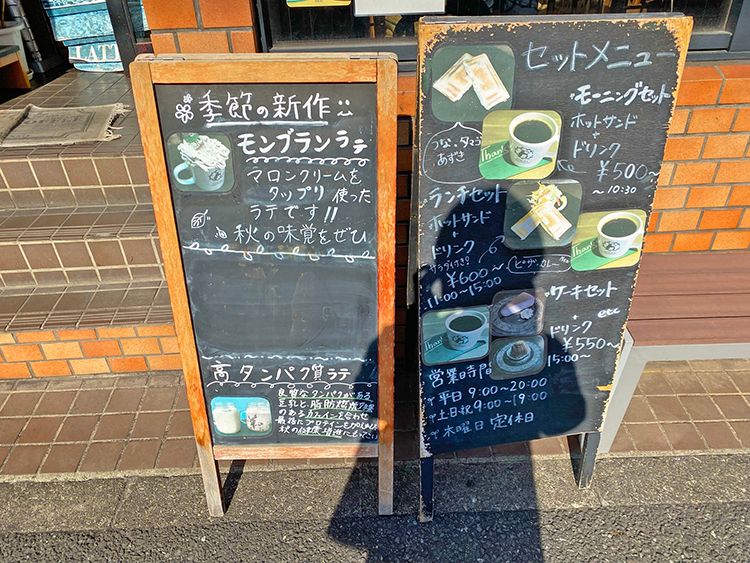 季節の新作
モンブランラテ
マロンクリームを
タップリ使った
ラテです!!
秋の味覚をぜひ
高タンパク質ラテ
良質なタンパクがある
豆乳と脂肪燃焼効果
のあるカフェインを合わせ
最後にプロテインを
秋の健康増進に
LAT
セットメニュー
モーニングセット
ホットサンド
+
ドリンク
¥500~
~10:30
つな・タマゴ
あずき
Than
ランチセット
ホットサンド
+
ドリンク
サラダ付き
¥600~
11:00~15:00
ピザ・カレー etc
Than
ケーキセット
+ etc
ドリンク
¥550~
15:00~
Than
営業日時間
平日 9:00~20:00
土日祝 9:00~19:00
木曜日 定休日